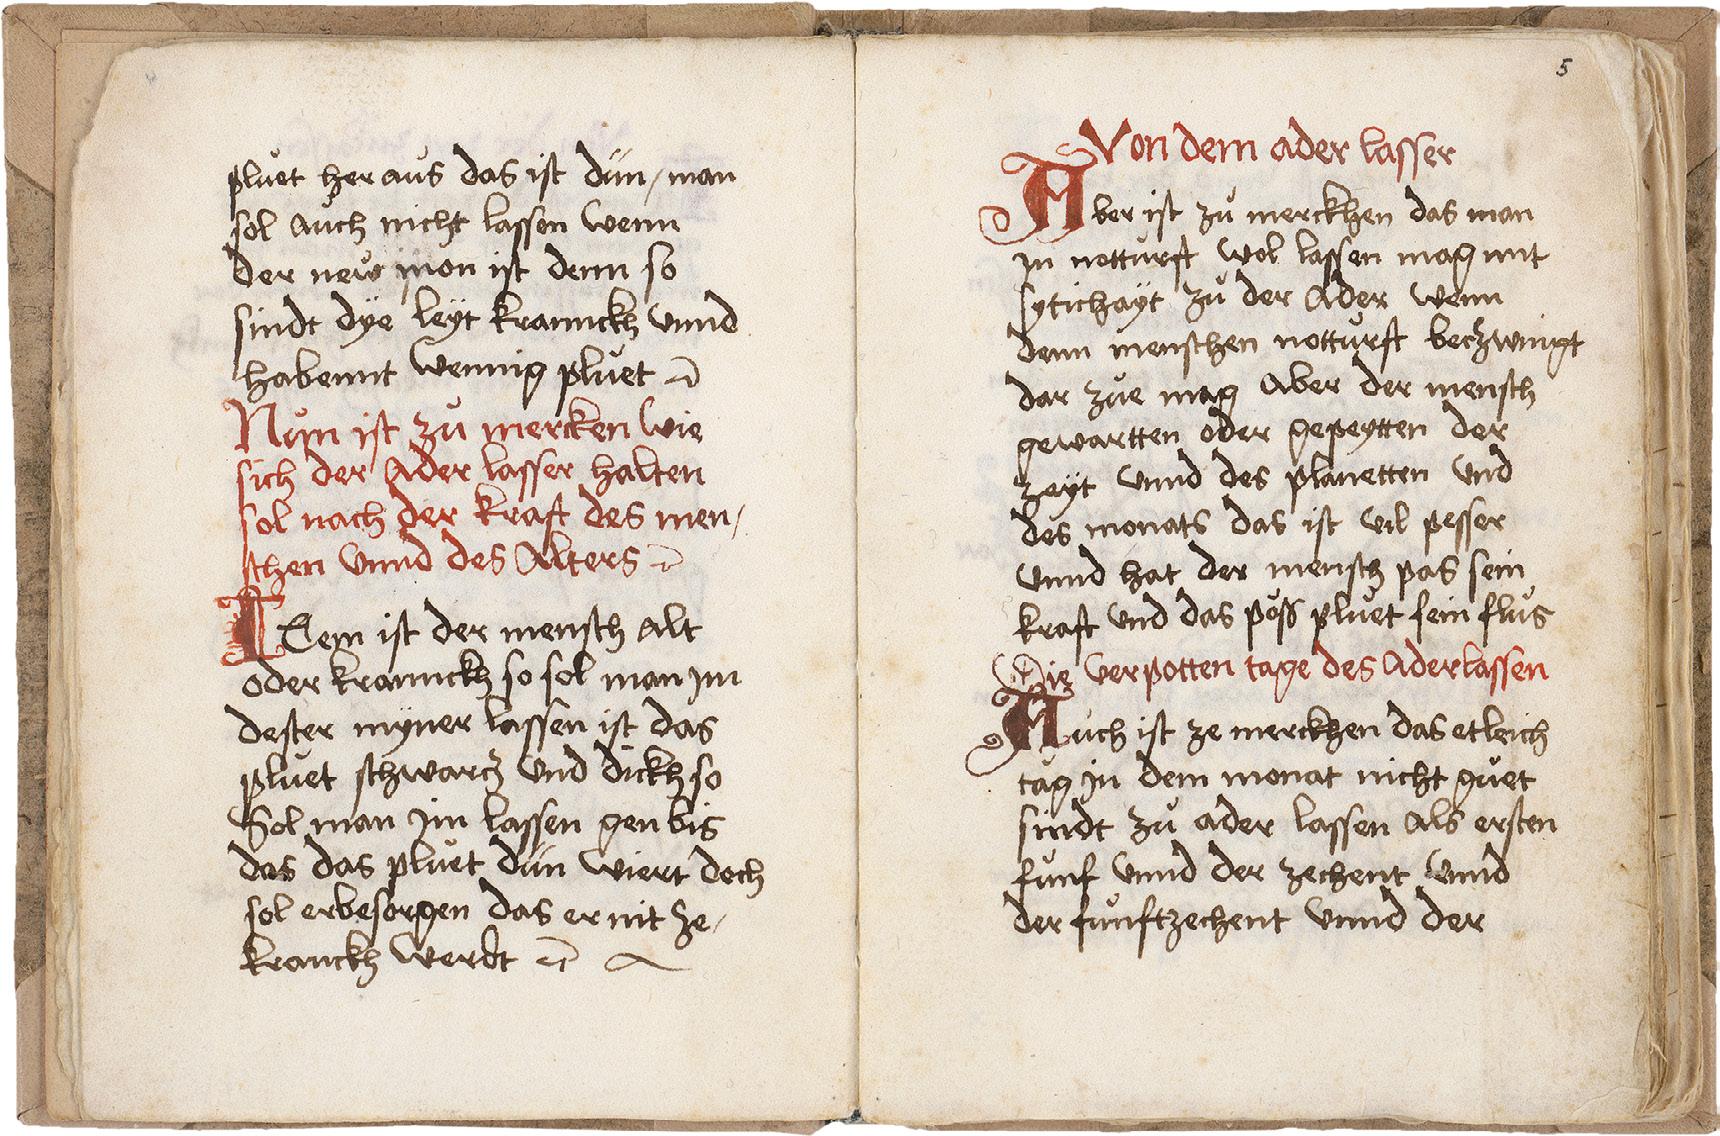 pluet her aus das ist dün / man
sol auch nicht lassen wenn
der new mon ist denn so
sindt dye leyt kranckh vnnd
habennt wennig pluet
Nun ist zu mercken wie
sich der Ader lasser halten
sol nach der kraft des men /
schen vnnd des Alters
ITem ist der mensch alt
oder kranckh so sol man im
dester myner lassen ist das
pluet schwarcz vnd dickh so
Sol man im lassen gen bis
das das pluet dün wiert doch
sol er besorgen das er nit ze /
kranckh werdt
5
Von dem ader lasser
Aber ist zu merckhen das man
in notturft wol lassen mag mit
sytichayt zu der Ader wenn
denn menschen notturft beczwingt
dar zue mag Aber der mensch
gewartten oder gepeytten der
zeyt vnnd des planetten vnd
des monats das ist vil pesser
vnnd hat der mensch pas sein
kraft vnd das pöss pluet sein flus
Die verpotten tage des Aderlassen
Auch ist ze merckhen das etleich
tag in dem monat nicht guet
sindt zu ader lassen als ersten
funf vnnd der zechent vnnd
der funftzechent vnnd der